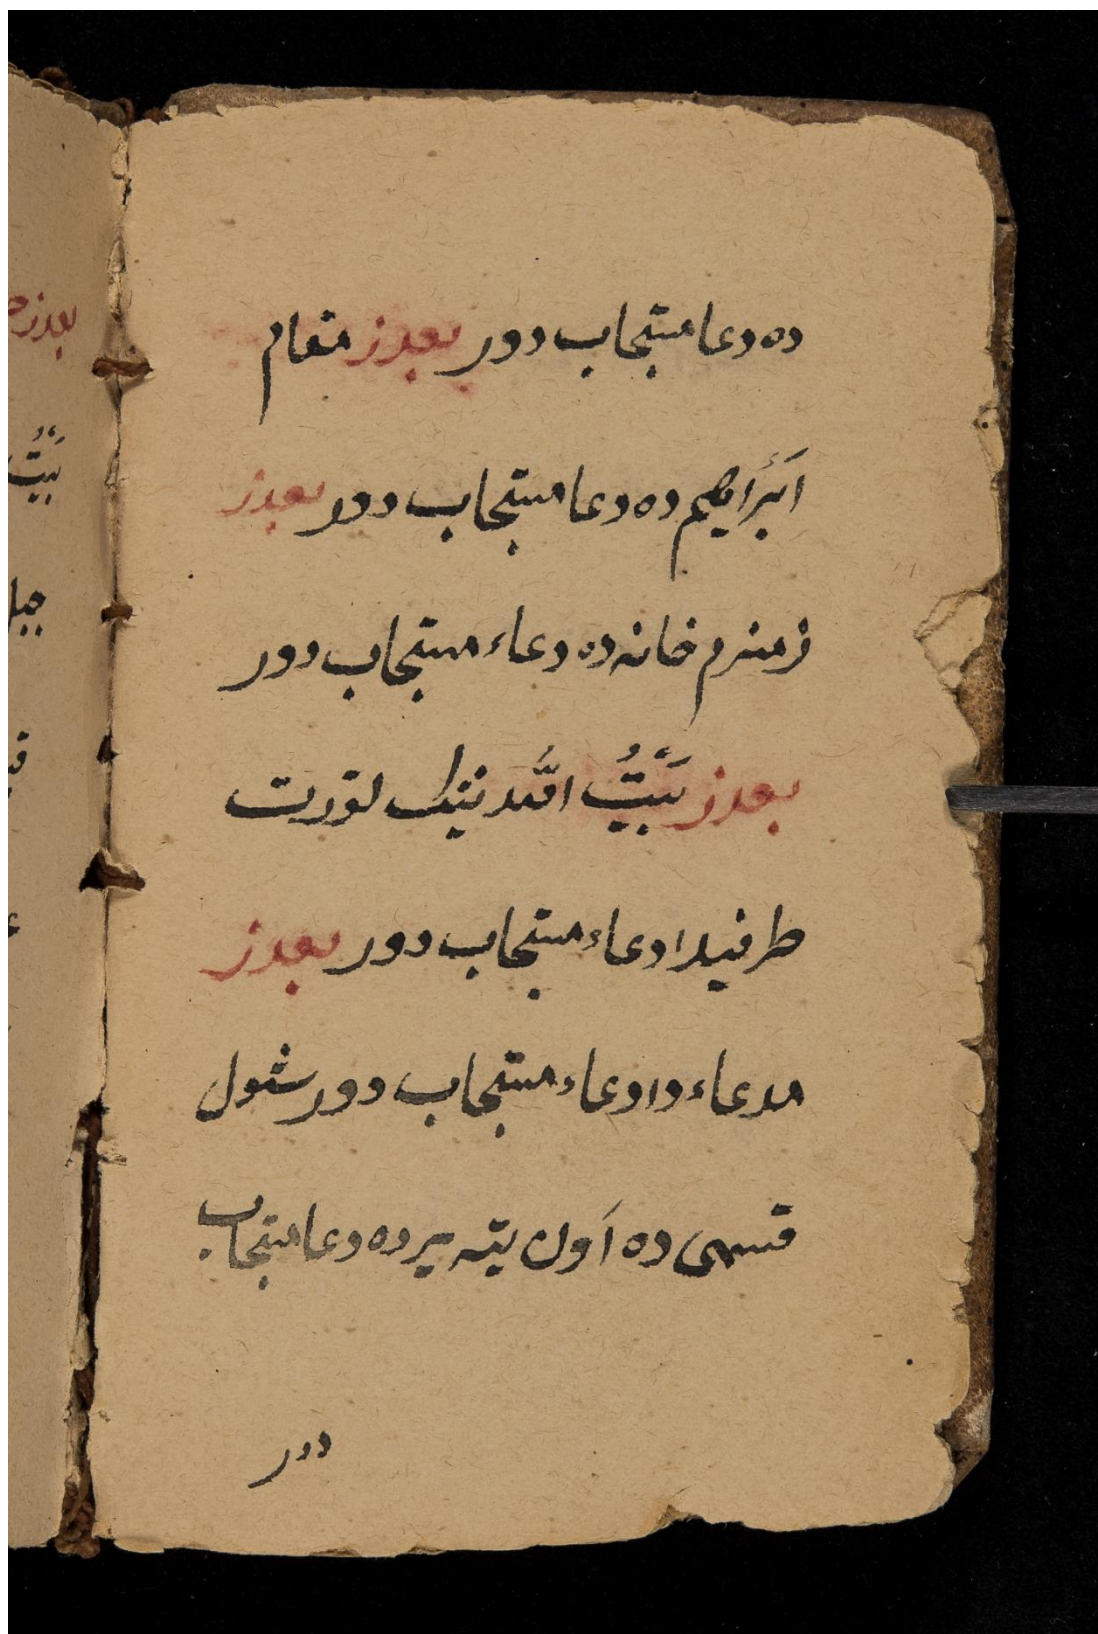 ده دعا مستجاب دور بعدز مقام
اَبْرَاهیم ده دعا مستجاب دور بعدز
زمزم خانه ده دعاء مستجاب دور
بعدز بَیْتُ اللّٰه نینك لتورت
طرفیدا دعاء مستجاب دور بعدز
مدعاء دا دعاء مستجاب دور شول
قسمی ده اَون یته یرده دعا مستجاب
دور
بعدز
بَیْتُ